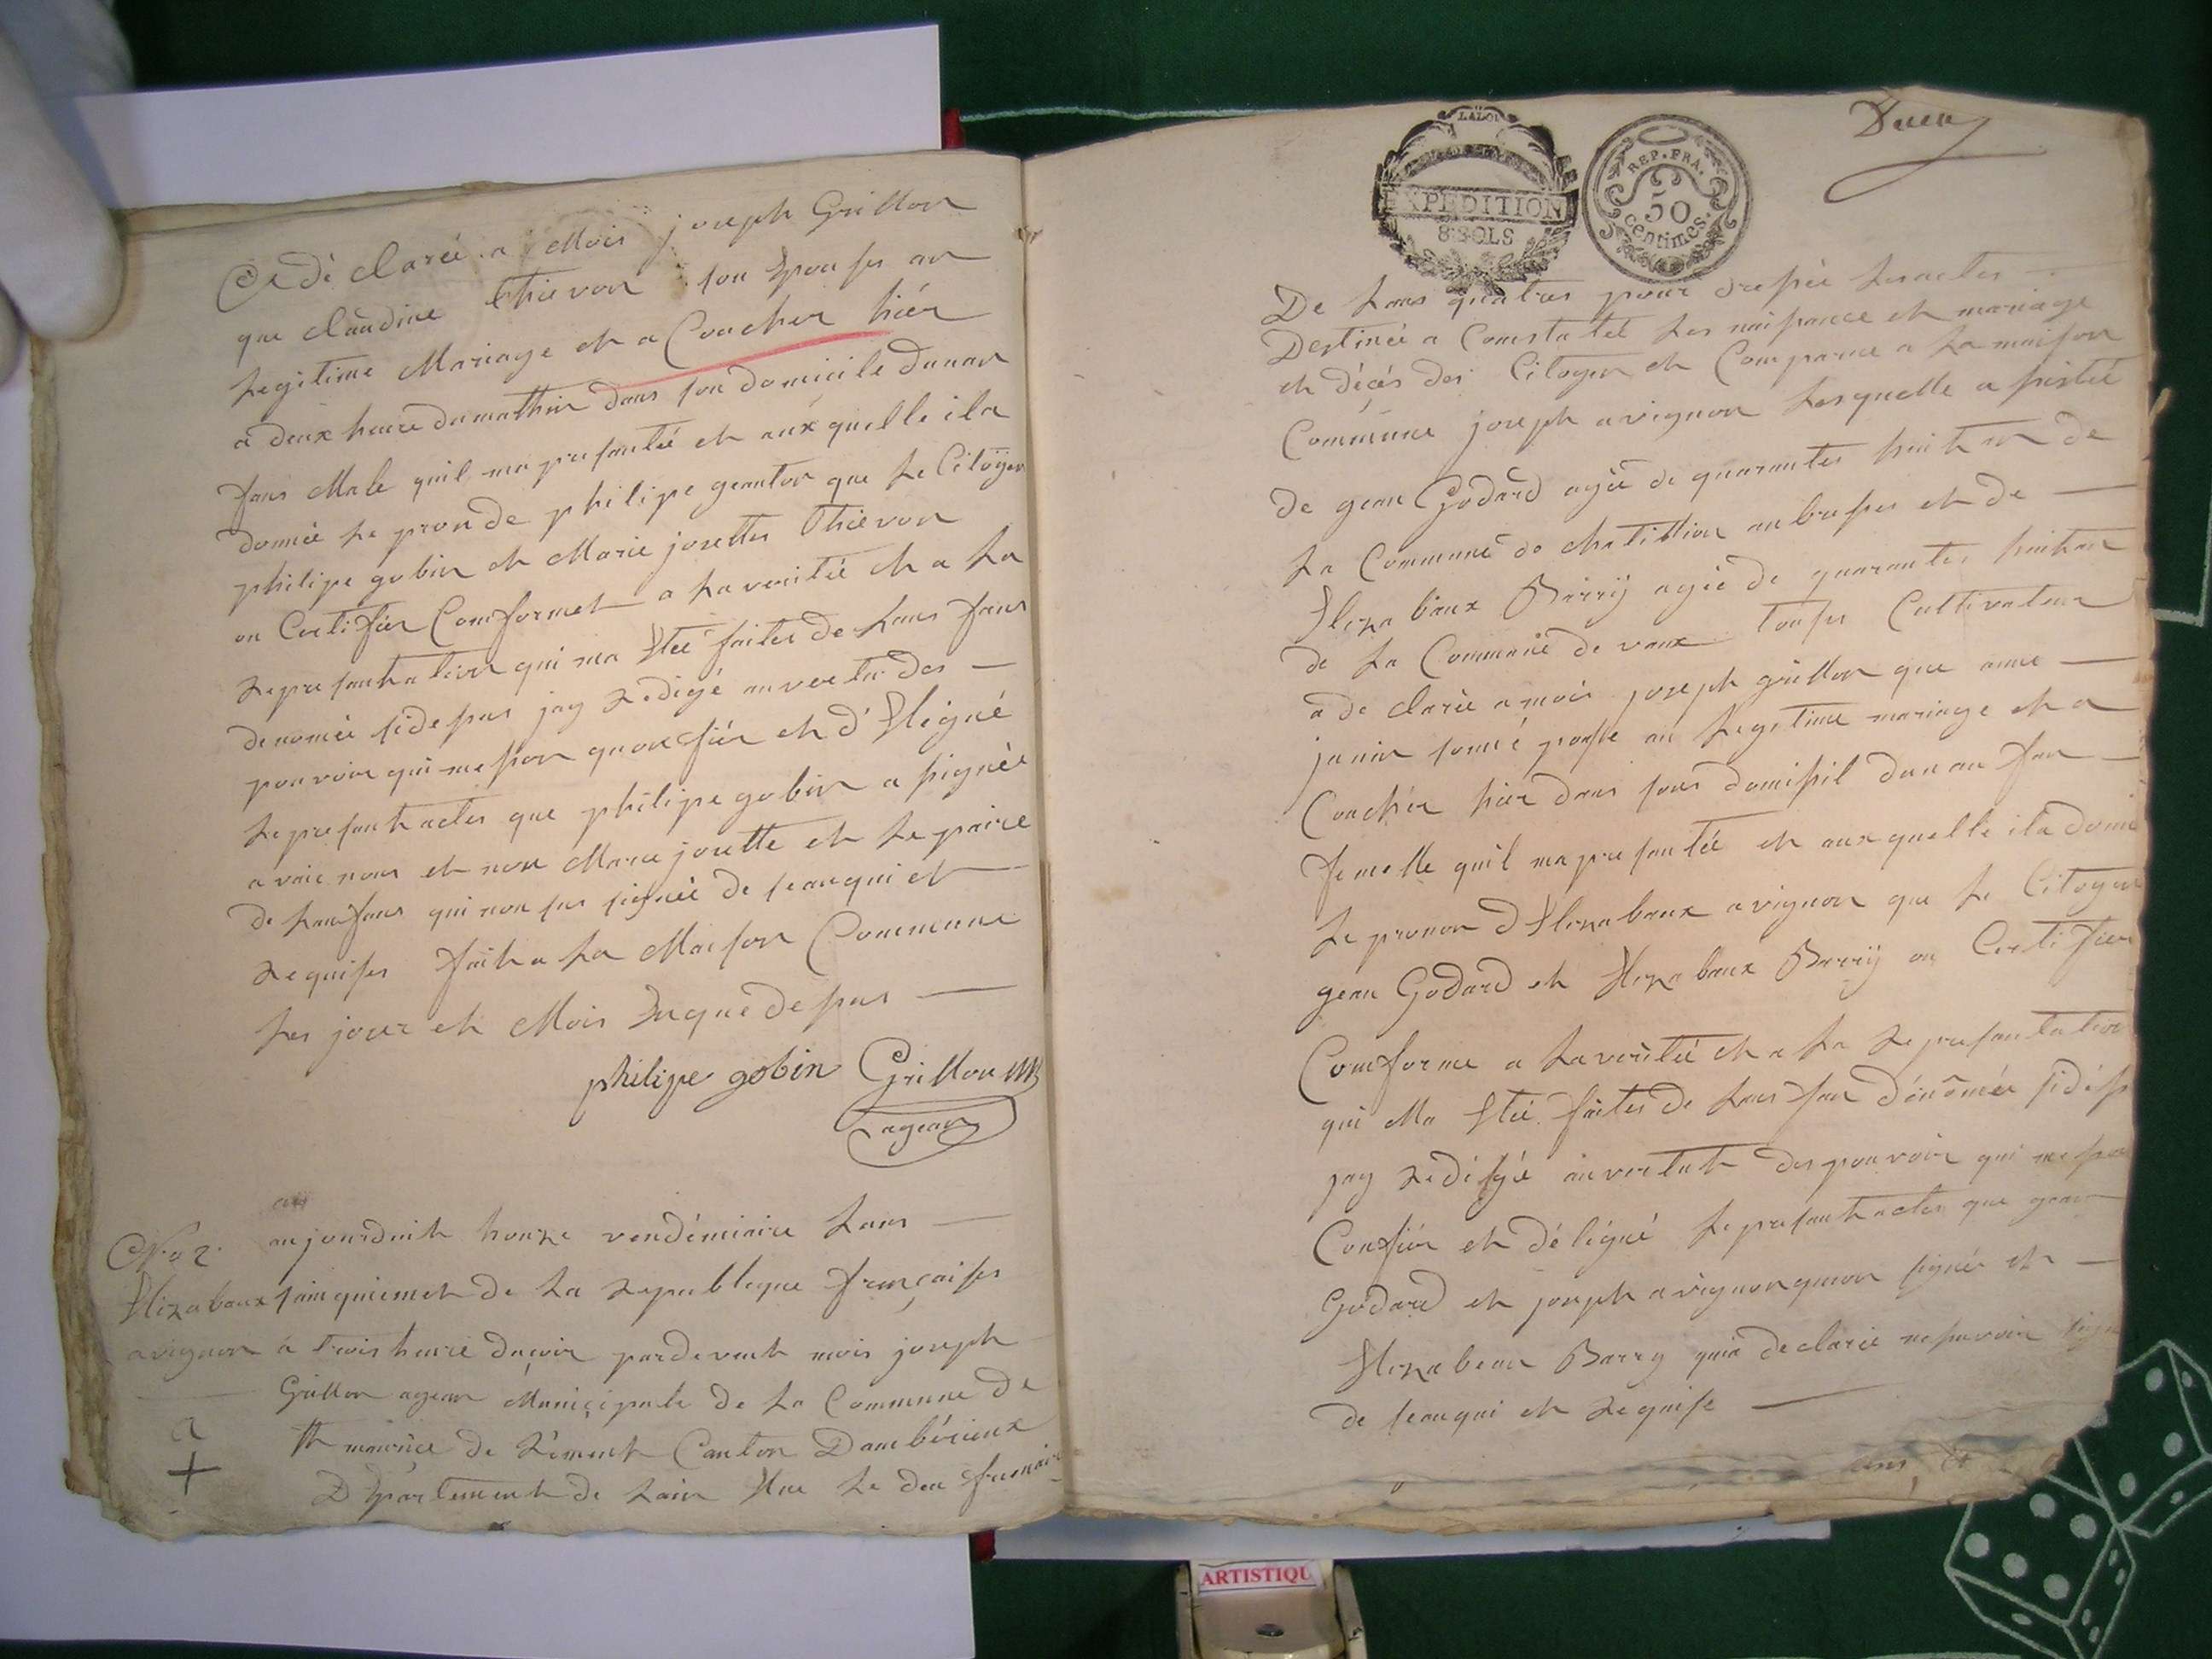 A dé clarée a Mois joseph Grillon
que claudine thievon son Epouses an
Legitime Mariage et a Coucher hiér
a deux heure du mathin dans son domicile dunan
fans Male quil ma presantée et aux quelle il a
donnée le pronde philipe geanton que le Citöÿen
philipe gobin et Marie josettes thievon
on Certifier Comformet a la veritée et a la
represantation qui ma Etée faites de Lans fans
denomée sidesus jay redigé anvertu des
pouvoir qui me son quonfiér et d'Eligué
Le presant actes que philipe gobin a signée
avaic nous et non Marie josette et le paire
de Lanfans qui non sus signée de seanqui et
requises fait a la Maison Commune
Les jour et Mois Euque desus
philipe gobin Grillon
agean
No 2. aujourduit honze vendémiaire Lans
Elizabaux sainquiemet de la republique françaises
avignon a trois heure du soir pardevant mois joseph
Grillon agean Municipale de la Commune de
St maurice de Rément Canton Dambérieux
a
+
DEpartement de Lain Elue le deu frimaire
LALOI
EXPEDITION
8 SOLS
REP. FRA.
50
centimes.
De Lans quatres pour dresée Lesactes
Destinée a Constatée Les naisance et mariage
et décés des Citoyen et Comparue a La maison
Commune joseph avignon Lesquelle a sistée
de gean Godard agée de quarantes huit an de
La Commune de chatillion
Elizabaux Barrÿ agée de quarantes huit an
de La Commune de vaux touses Cultivateur
a de clarée a mois joseph grillon que anne
janin sonné pouse an Legetime mariage et a
Couchér hier dans sons domisil dunan fan
femelle quil ma presantée et aux quelle il a donné
Le pronon d'Elizabaux avignon que le Citoyen
gean Godard et Elizabaux Barrÿ on Certifier
Comforme a Laveritée et a La represantation
qui Ma Etée faites de Lans fan dénomée sidés
jay redigée anvertut des pouvoir qui me son
Confiér et déligué Le presant actes que gean
Godard et joseph avignon quion signée et
Elizabeau Barry quia declarée nesavoir signe
de seanqui et requise